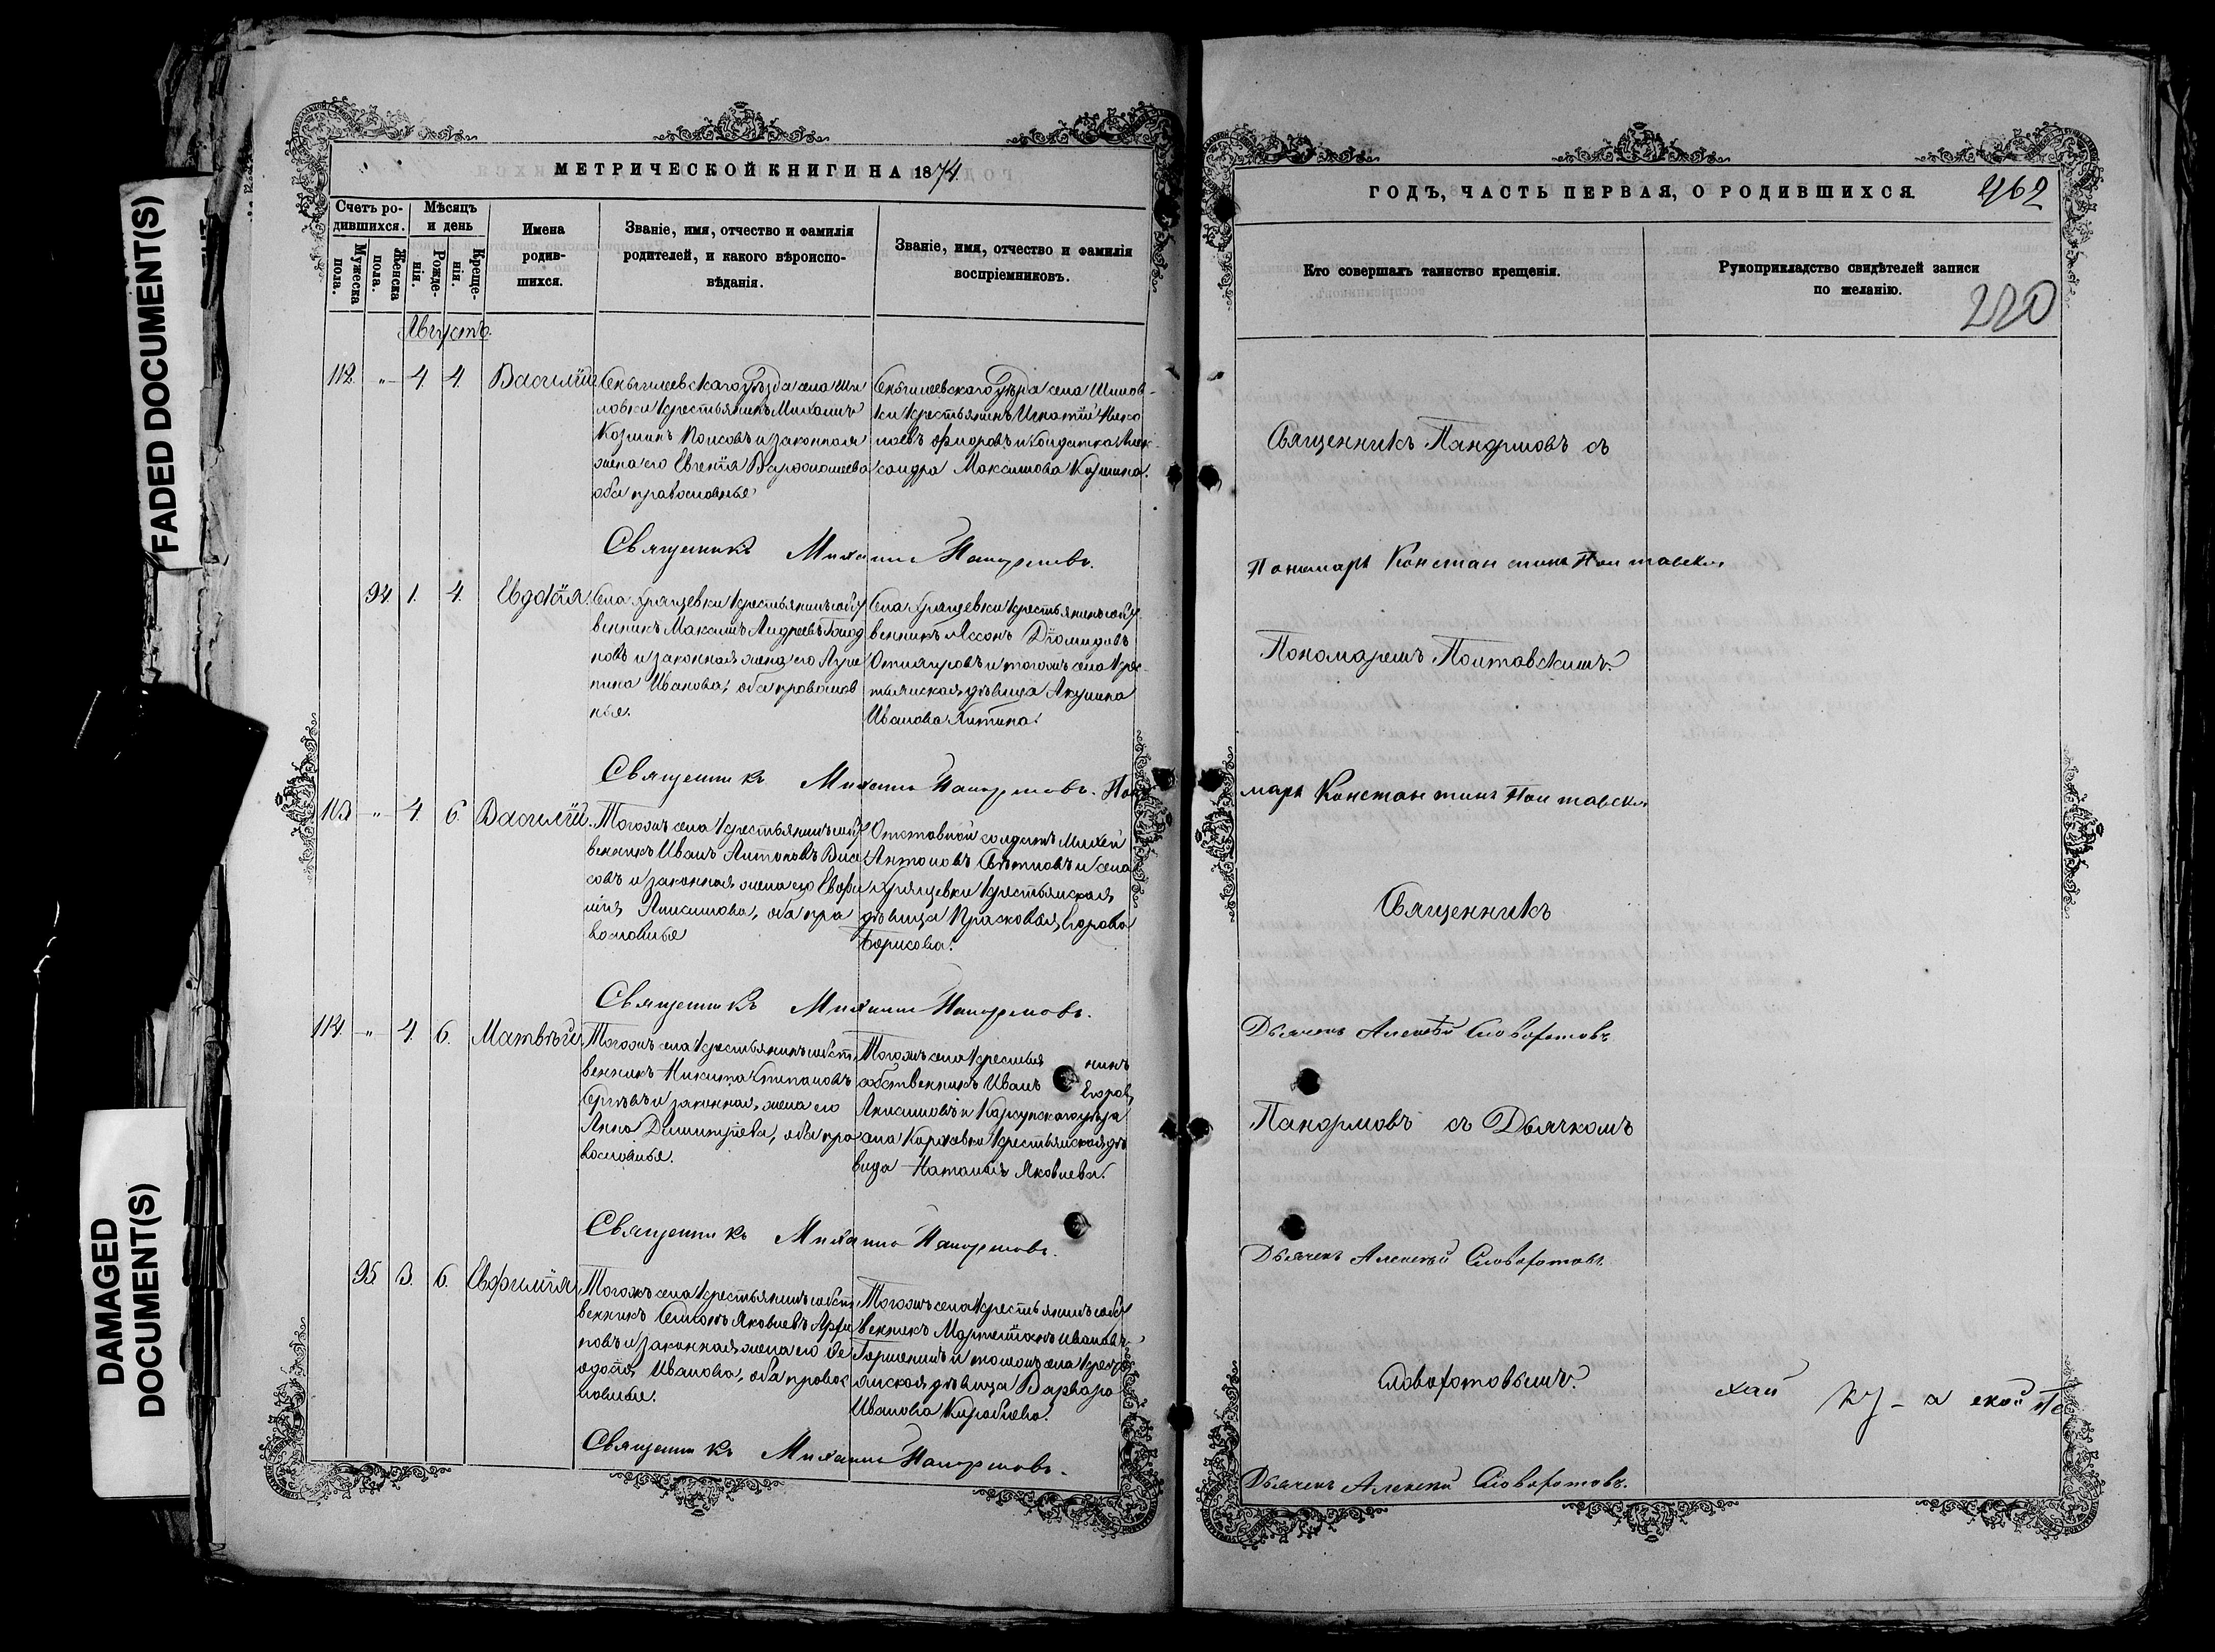 FADED DOCUMENT(S)
DAMAGED DOCUMENT(S)
МЕТРИЧЕСКОЙ КНИГИ НА 1874.
Счетъ родившихся.
Мужеска пола.
Женска пола.
Мѣсяцъ и день
Рожде-нія.
Креще-нія.
Имена
родив-
шихся.
Званіе, имя, отчество и фамилія
родителей, и какого вѣроиспо-
вѣданія.
Званіе, имя, отчество и фамилія
воспріемниковъ.
Августъ.
112. " 4. 4. Василій
Сенгилеевскаго уѣзда села Ши
ловки крестьянинъ Михаилъ
Козминъ и законная
жена его Евгенія Варѳоломеева
оба православные
Сенгилеевскаго уѣзда села Шилов-
ки крестьянинъ Игнатій Нико
лаевъ Фроловъ и солдатка Алек-
сандра Максимова Кузмина.
Священникъ Михаилъ Панормовъ.
94. 1. 4. Евдокія.
Села Хрящевки крестьянинъ собст
венникъ Максимъ Андреевъ
новъ и законная жена его Агри
пина Иванова, оба православ
ные.
Села Хрящевки крестьянинъ собст
венникъ Діомидовъ
и тогожъ села крес-
тьянская дѣвица Акулина
Иванова
Священникъ Михаилъ Панормовъ. Поно
113 " 4. 6. Василій.
Тогожъ села крестьянинъ собст
венникъ Иванъ Антоновъ
совъ и законная жена его Евфи
мія Анисимова, оба пра
вославные
Отставной солдатъ Михей
Антоновъ и села
Хрящевки крестьянская
дѣвица Прасковья Егорова
Борисова.
Священникъ Михаилъ Панормовъ.
114. " 4. 6. Матвѣй
Тогожъ села крестьянинъ собст
венникъ Никита Степановъ
Сергѣевъ и законная жена его
Анна Димитріева, оба пра
вославные.
Тогожъ села крестья нинъ
собственникъ Иванъ Егоровъ
Анисимовъ и Карсунскаго уѣзда
села Коржевки крестьянская дѣ
вица Наталія Яковлева.
Священникъ Михаилъ Панормовъ.
95. 3. 6. Евфимія
Тогожъ села крестьянинъ собст
венникъ Симеонъ Яковлевъ
новъ и законная жена его Ѳе
одосія Иванова, оба правос
лавные.
Тогожъ села крестьянинъ собст
венникъ Мартиніанъ Ивановъ
и тогожъ села кресть
янская дѣвица Варвара
Иванова
Священникъ Михаилъ Панормовъ.
ГОДЪ, ЧАСТЬ ПЕРВАЯ, О РОДИВШИХСЯ.
462
Кто совершалъ таинство крещенія.
Рукоприкладство свидѣтелей записи
по желанію.
220
Священникъ Панормовъ съ
Пономарь Константинъ Полтавскій
Пономаремъ Полтавскимъ.
марь Константинъ Полтавскій
Священникъ
Дьячекъ Алексѣй Словохотовъ
Панормовъ съ Дьячкомъ
Дьячекъ Алексѣй Словохотовъ
Словохотовымъ.
Дьячекъ Алексѣй Словохотовъ.